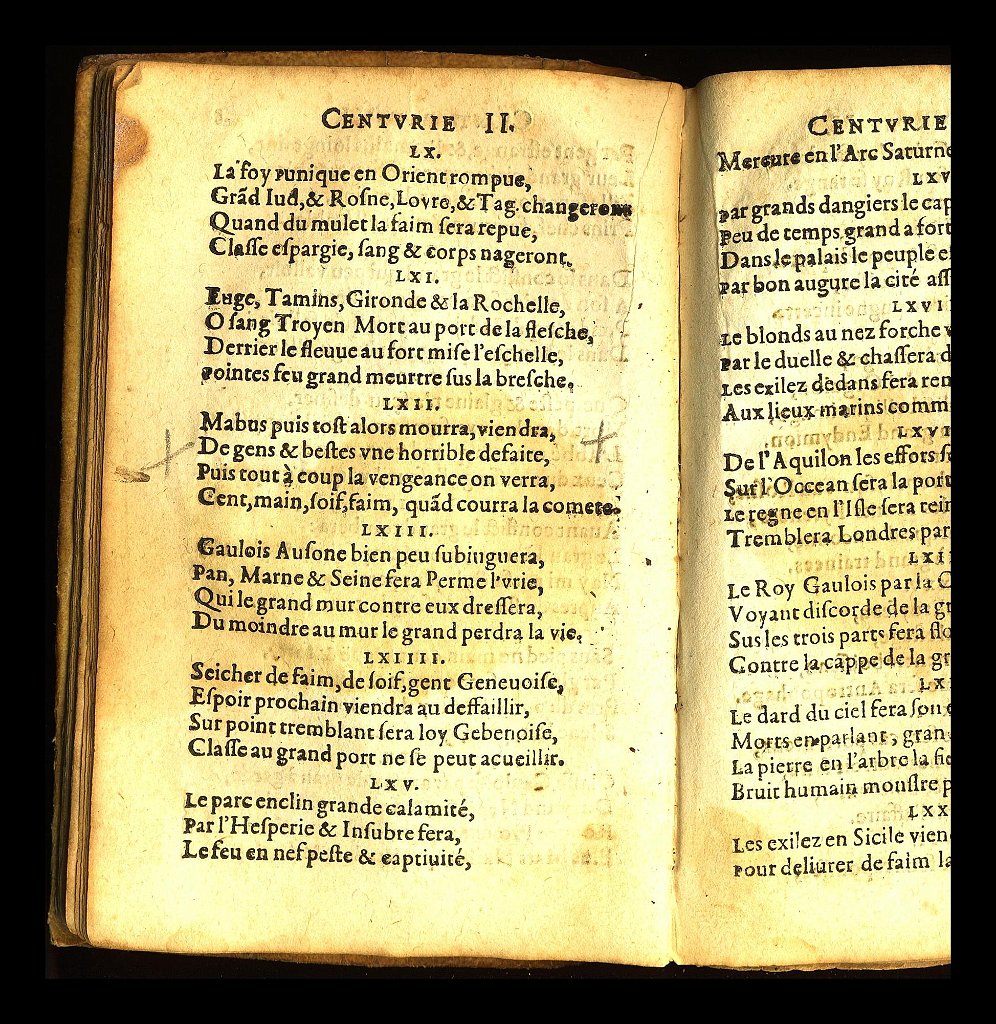 CENTVRIE II.
LX.
La foy punique en Orient rompue,
Grãd Iud, & Rosne, Lovre, & Tag. changeront
Quand du mulet la faim sera repue,
Classe espargie, sang & corps nageront.
LXI.
Euge, Tamins, Gironde & la Rochelle,
O sang Troyen Mort au port de la flesche,
Derrier le fleuue au fort mise l'eschelle,
Pointes feu grand meurtre sus la bresche.
LXII.
Mabus puis tost alors mourra, viendra,
De gens & bestes vne horrible defaite,
Puis tout à coup la vengeance on verra,
Cent, main, soif, faim, quãd courra la comete.
LXIII.
Gaulois Ausone bien peu subiuguera,
Pan, Marne & Seine fera Perme l'vrie,
Qui le grand mur contre eux dressera,
Du moindre au mur le grand perdra la vie.
LXIIII.
Seicher de faim, de soif, gent Geneuoise,
Espoir prochain viendra au deffaillir,
Sur point tremblant sera loy Gebenoise,
Classe au grand port ne se peut acueillir.
LXV.
Le parc enclin grande calamité,
Par l'Hesperie & Insubre fera,
Le feu en nef peste & captiuité,
CENTVRIE
Mercure en l'Arc Saturne
LXV
Par grands dangiers le cap
Peu de temps grand a fort
Dans le palais le peuple e
Par bon augure la cité ass
LXVII
Le blonds au nez forche v
Par le duelle & chassera d
Les exilez dedans fera ren
Aux lieux marins comm
LXVI
De l'Aquilon les efforts s
Sur l'Occean sera la port
Le regne en l'Isle sera rein
Tremblera Londres par
LXI
Le Roy Gaulois par la C
Voyant discorde de la gr
Sus les trois parts fera flo
Contre la cappe de la gr
LX
Le dard du ciel fera son e
Morts en parlant, gran
La pierre en l'arbre la fie
Bruit humain monstre p
LXX
Les exilez en Sicile vien
Pour deliurer de faim la